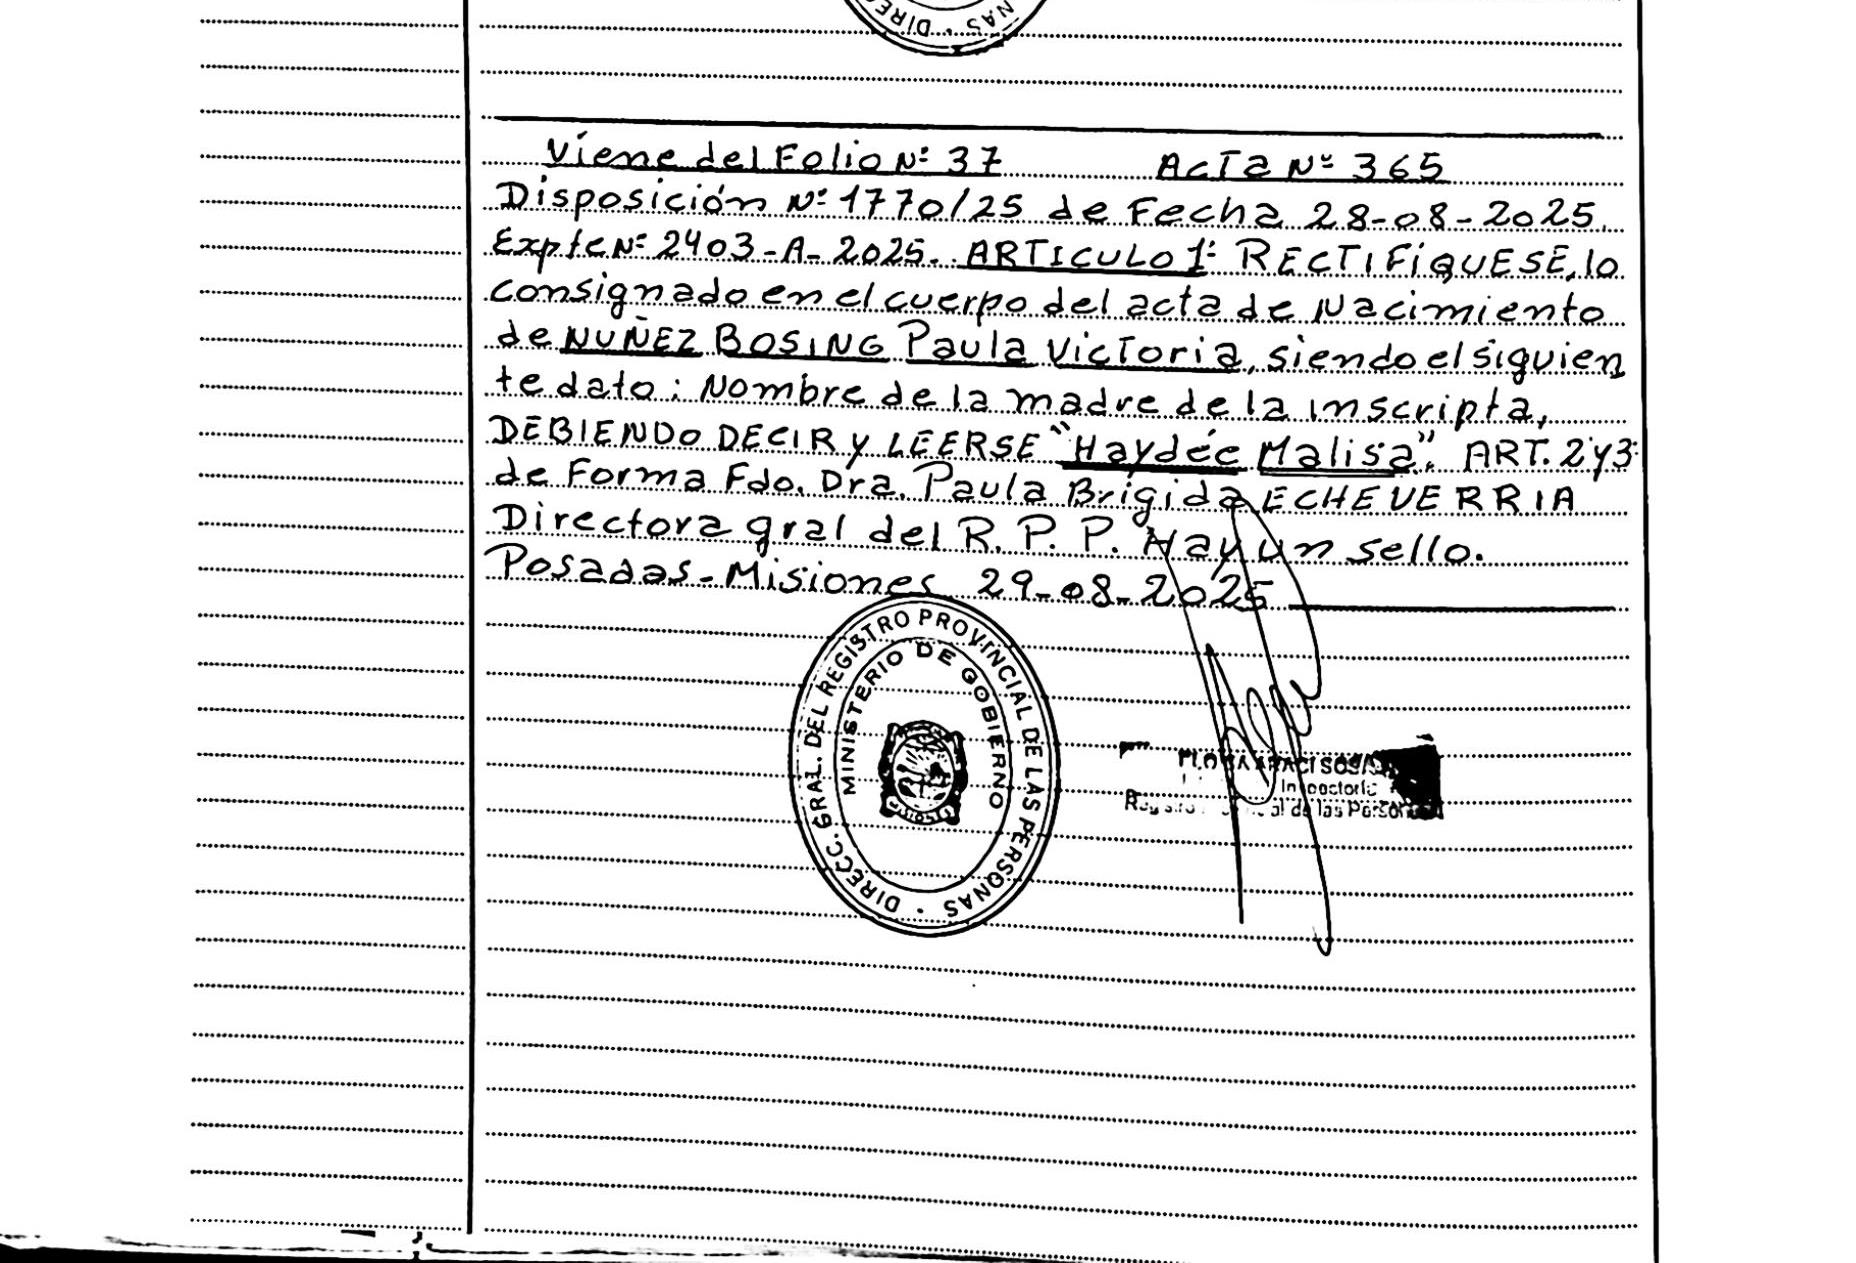 Viene del Folio Nº 37 Acta Nº 365
Disposición Nº 1770/25 de Fecha 28-08-2025.
Expte Nº 2403-A-2025. ARTICULO 1º RECTIFíQUESE, lo
consignado en el cuerpo del acta de Nacimiento
de NUÑEZ BOSING Paula Victoria, siendo el siguien
te dato: Nombre de la madre de la inscripta,
DEBIENDO DECIR y LEERSE "Haydée Malisa". ART. 2 y 3
de Forma Fdo. Dra. Paula Brígida ECHEVERRIA
Directora gral del R. P. P. Hay un sello.
Posadas-Misiones 29-08-2025
DIRECC. GRAL. DEL REGISTRO PROVINCIAL DE LAS PERSONAS
MINISTERIO DE GOBIERNO
de las Personas